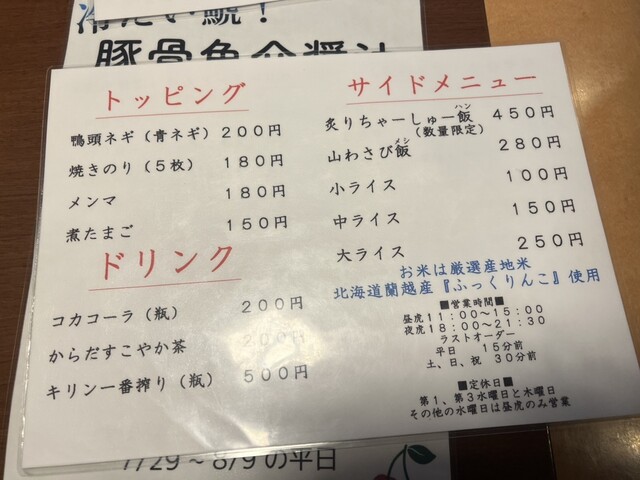 豚骨魚介醤油
トッピング
鴨頭ネギ（青ネギ）２００円
焼きのり（５枚） １８０円
メンマ １８０円
煮たまご １５０円
ドリンク
コカコーラ（瓶） ２００円
からだすこやか茶 ２００円
キリン一番搾り（瓶） ５００円
サイドメニュー
ハン
炙りちゃーしゅー飯 ４５０円
（数量限定）
メシ
山わさび飯 ２８０円
小ライス １００円
中ライス １５０円
大ライス ２５０円
お米は厳選産地米
北海道蘭越産『ふっくりんこ』使用
■営業時間■
昼虎１１：００～１５：００
夜虎１８：００～２１：３０
ラストオーダー
平日 １５分前
土、日、祝 ３０分前
■定休日■
第１、第３水曜日と木曜日
その他の水曜日は昼虎のみ営業
7/29～8/9の平日